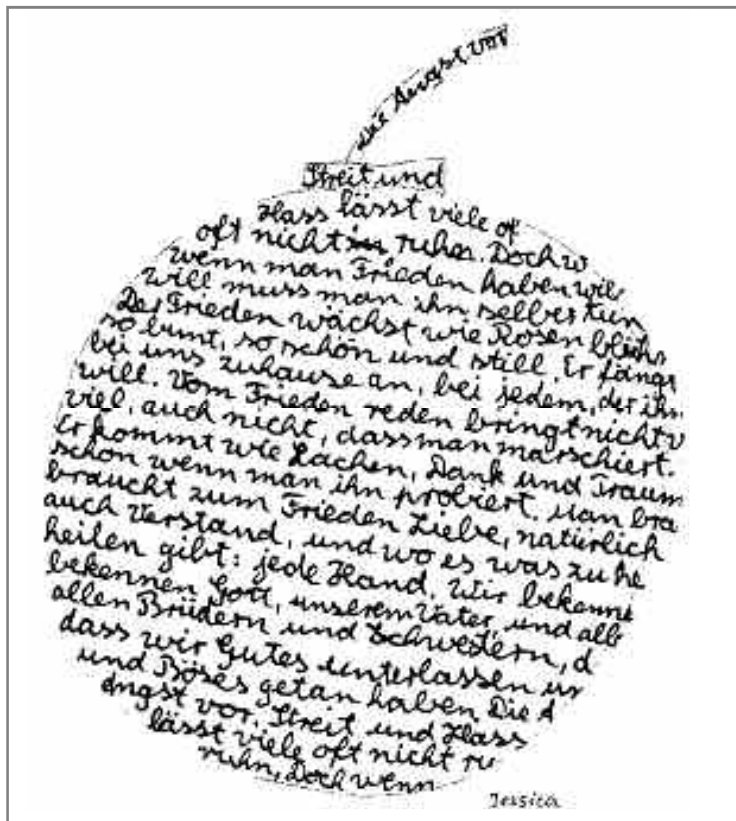 die Angst vor
Streit und
Hass lässt viele of
oft nicht in ruhn. Doch w
wenn man Frieden haben will
will muss man ihn selber tun
Der Frieden wächst wie Rosen blühn
so bunt, so schön und still. Er fängt
bei uns zuhause an, bei jedem, der ihn
will. Vom Frieden reden bringt nicht v
viel, auch nicht, dass man marschiert.
Er kommt wie Lachen, Dank und Traum
schon wenn man ihn probiert. Man bra
braucht zum Frieden Liebe, natürlich
auch Verstand, und wo es was zu he
heilen gibt: jede Hand. Wir bekenne
bekennen Gott, unserem Vater, und alle
allen Brüdern und Schwestern, d
dass wir Gutes unterlassen un
und Böses getan haben. Die A
Angst vor. Streit und Hass
lässt viele oft nicht ru
ruhn, Doch wenn
Jessica